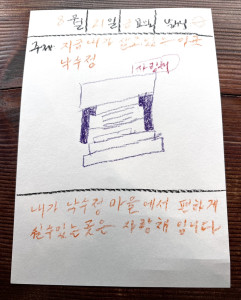 8 월 21 일 요일 날씨
주제 지금 내가 이곳
낙수정
사랑채
내가 낙수정 마을에서 편하게
쉴수있는 곳은 사랑채 입니다